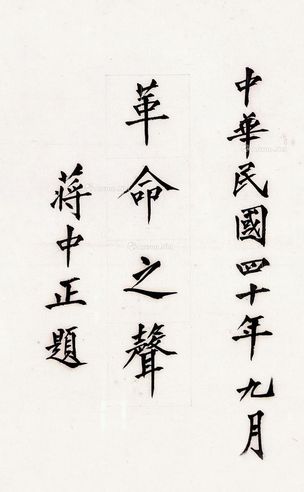 中華民國四十年九月
革命之聲
蔣中正題